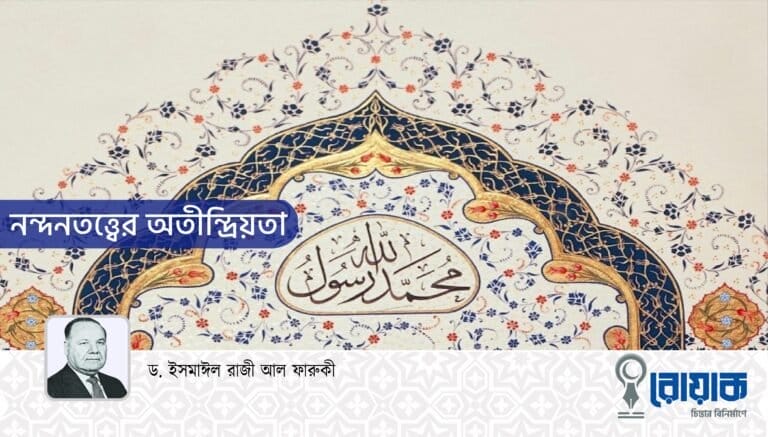 নন্দনতত্ত্বের অতীন্দ্রিয়তা
محمد رسول الله
ড. ইসমাঈল রাজী আল ফারুকী
রোয়াক
চিন্তার বিনির্মাণে